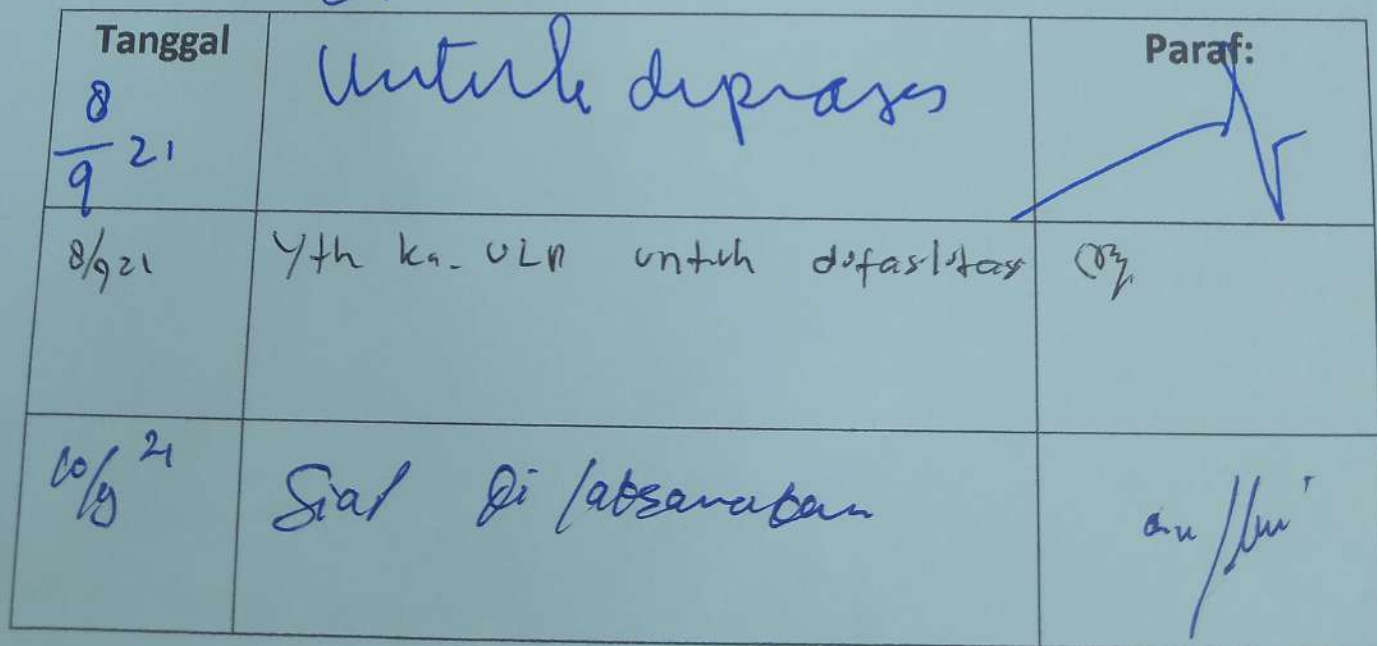 Tanggal
Untuk diproses
Paraf:
8/9 21
8/9 21 Yth ka. ULP untuk difasilitasi
10/9 21 Siap Di laksanakan